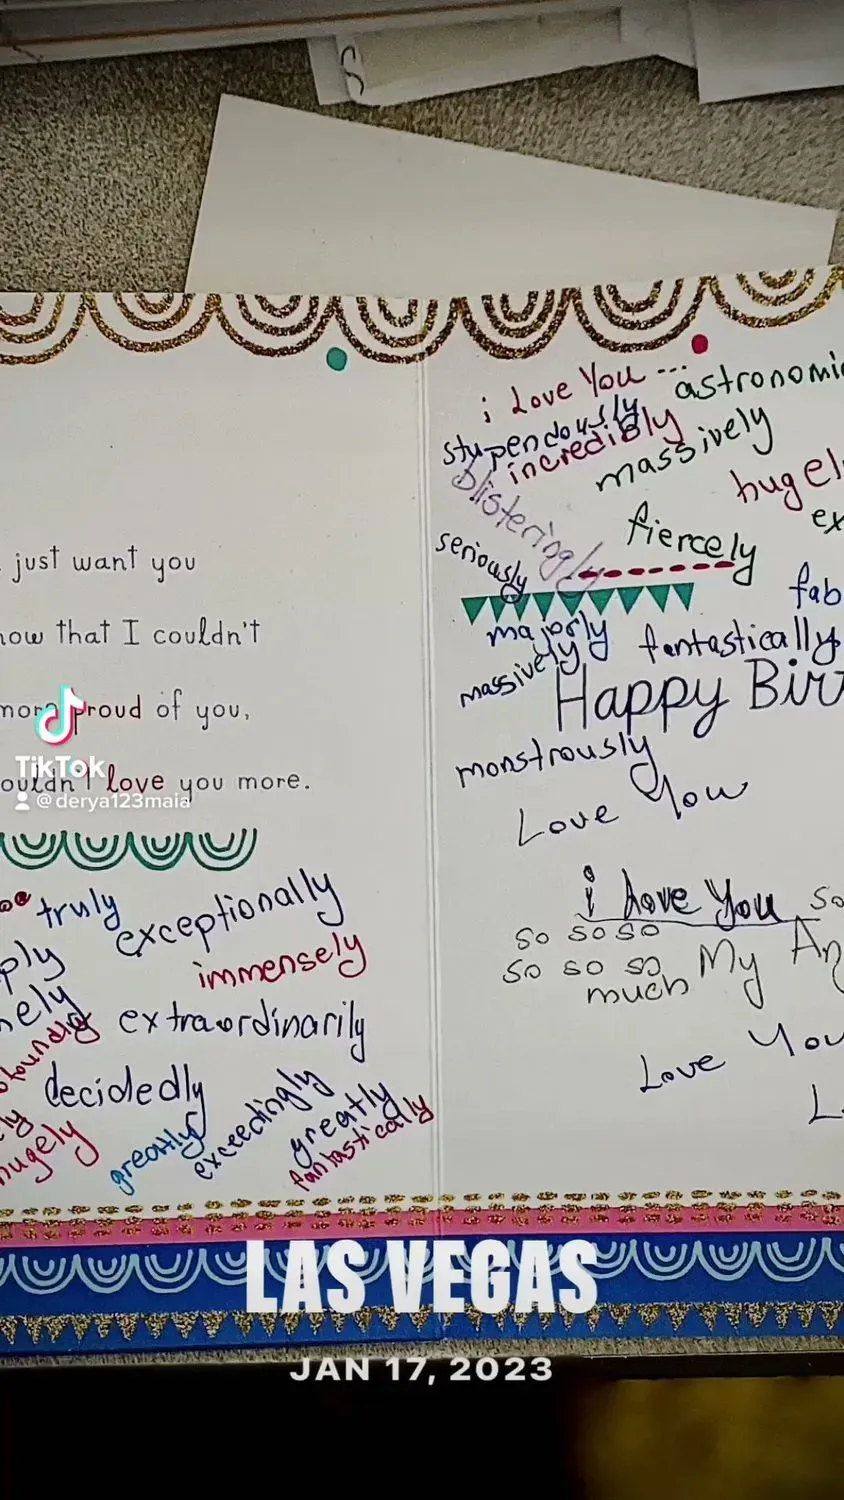 just want you
now that I couldn't
more proud of you,
couldn't love you more.
TikTok
@derya123maia
truly
exceptionally
immensely
extraordinarily
decidedly
hugely
greatly
exceedingly
greatly
fantastically
i Love You ...
astronomi
stupendously
incredibly
massively
blisteringly
hugel
fiercely
ex
seriously
fab
majorly
fantastically
massively
Happy Bir
monstrously
Love You
i Love You so
so so so
so so so
much My An
Love You
L
LAS VEGAS
JAN 17, 2023